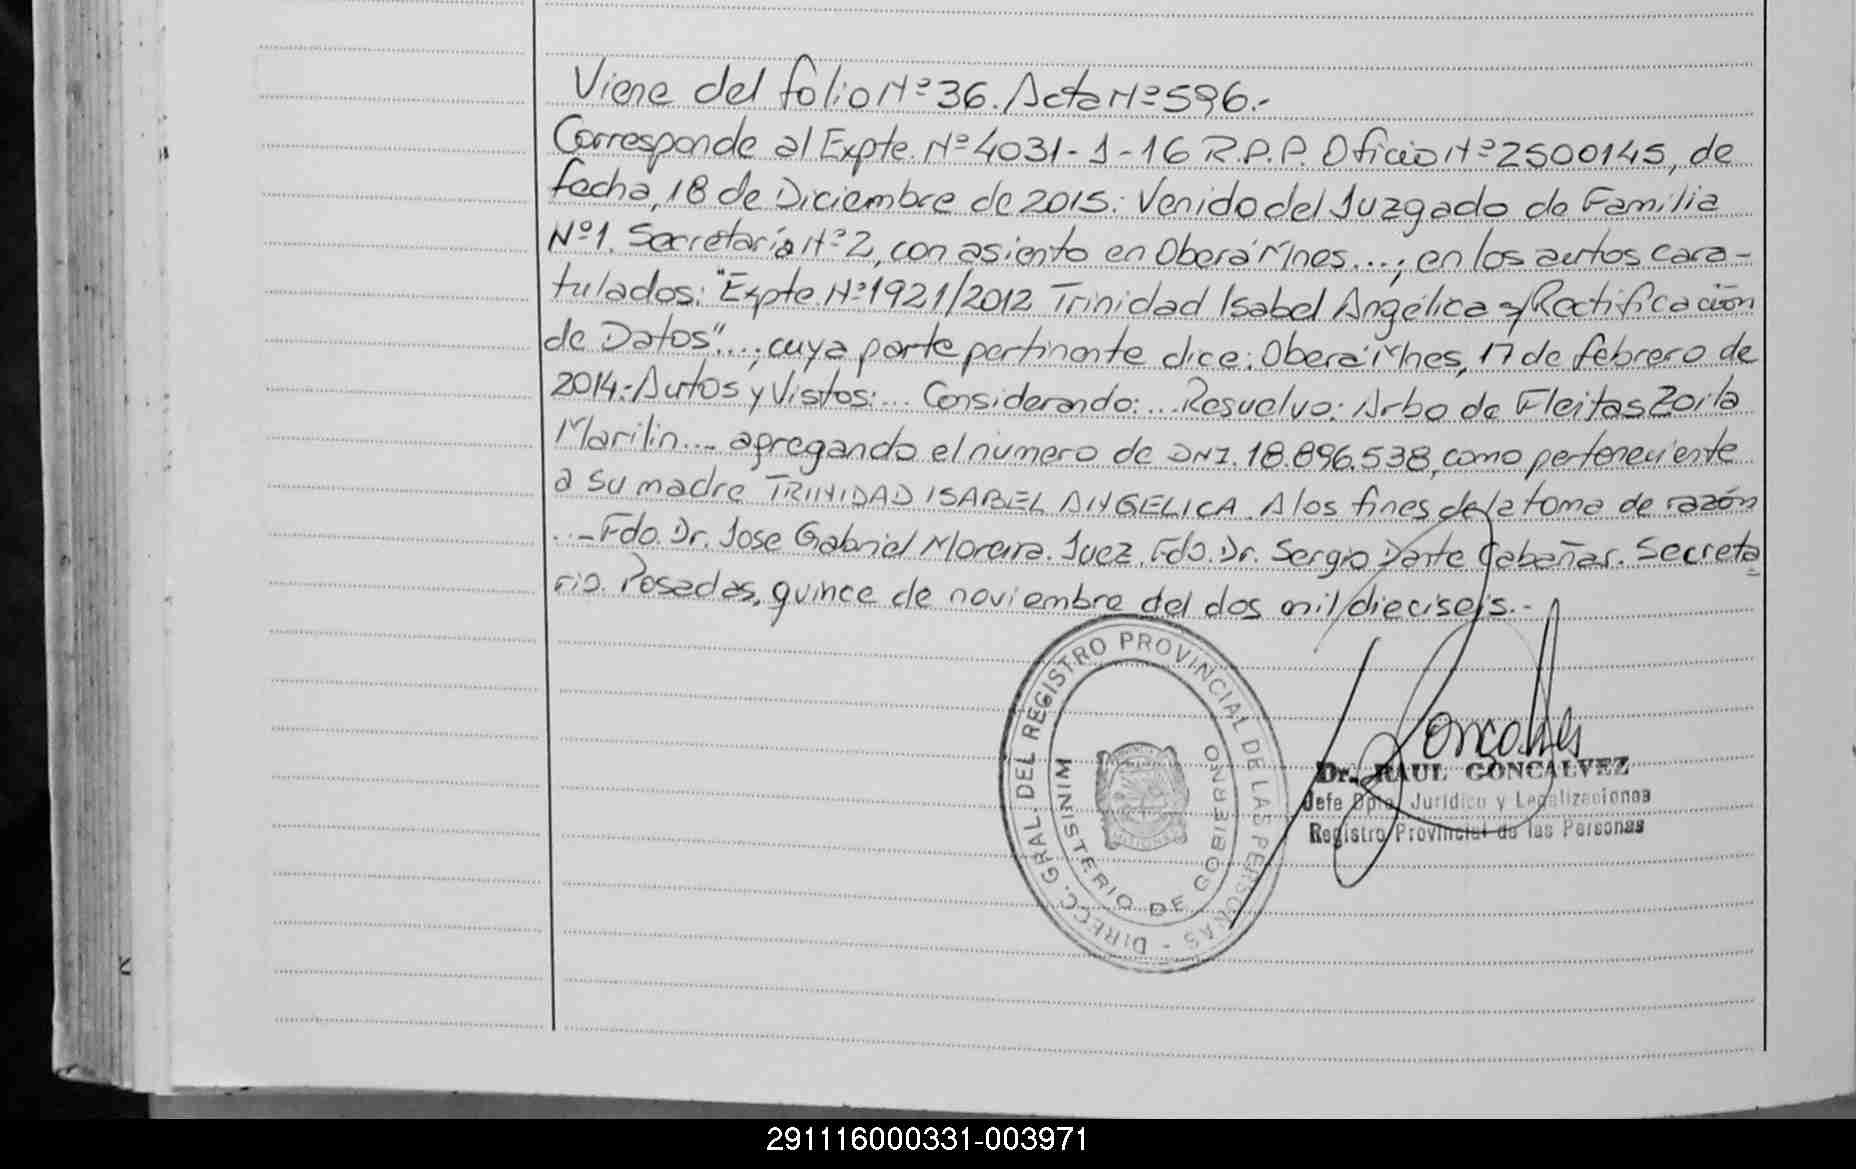 Viene del folio Nº 36. Acta Nº 596.-
Corresponde al Expte. Nº 4031-1-16 R.P.P. Oficio Nº 2500145, de
fecha, 18 de Diciembre de 2015.: Venido del Juzgado de Familia
Nº1. Secretaría Nº 2, con asiento en Oberá Mnes...; en los autos cara-
tulados: "Expte. Nº 1921/2012 Trinidad Isabel Angélica s/Rectificación
de Datos"...; cuya parte pertinente dice: Oberá Mnes, 17 de febrero de
2014.- Autos y Vistos:... Considerando:... Resuelvo: Arbo de Fleitas Zorla
Marilin.... agregando el numero de DNI. 18.896.538, como perteneciente
a su madre TRINIDAD ISABEL ANGELICA. A los fines de la toma de razón
...- Fdo. Dr. Jose Gabriel Moreira. Juez. Fdo. Dr. Sergio Dante Cabañas. Secreta
rio. Posadas, quince de noviembre del dos mil dieciseis.-
DIRECC. GRAL. DEL REGISTRO PROVINCIAL DE LAS PERSONAS -
MINISTERIO DE GOBIERNO
Dr. RAUL GONCALVEZ
Jefe Dpto. Jurídico y Legalizaciones
Registro Provincial de las Personas
291116000331-003971